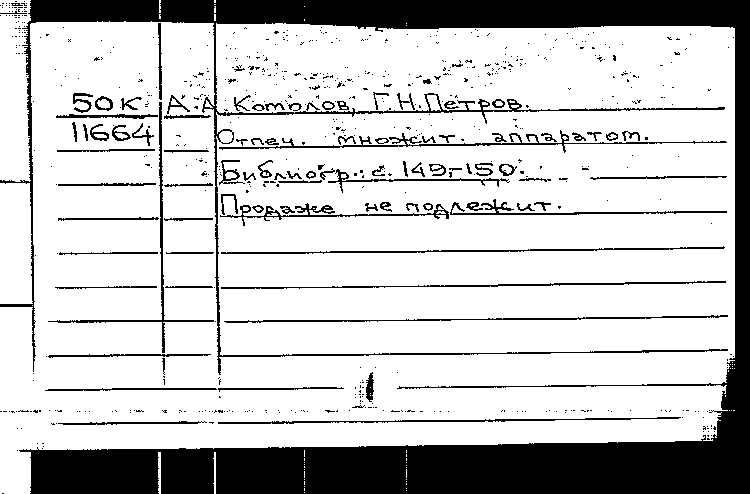 50к А.А. Котолов, Г.Н. Петров.
11664 Отпеч. множит. аппаратом.
Библиогр.: с. 149-150.
Продаже не подлежит.